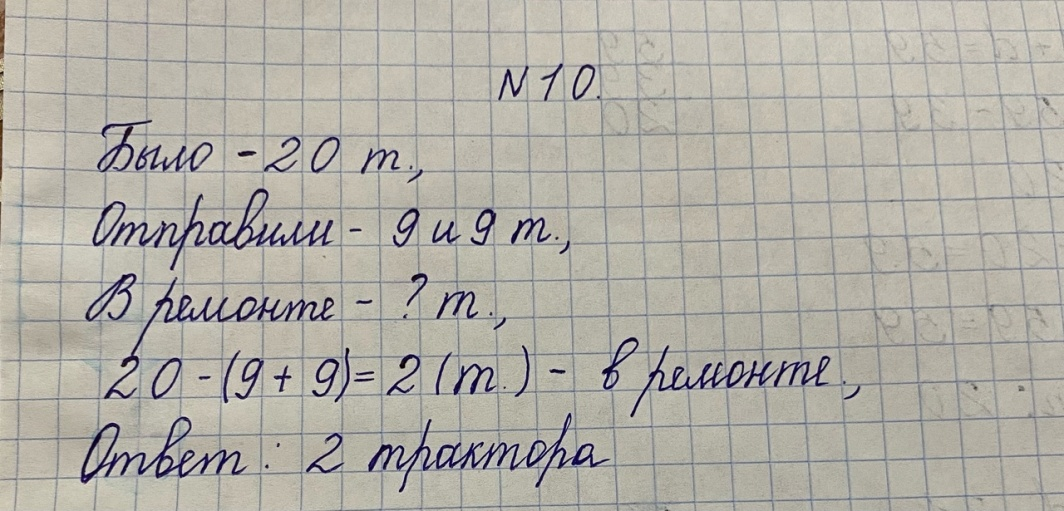 N 10.
Было - 20 т.,
Отправили - 9 и 9 т.,
В ремонте - ? т.,
20 - (9 + 9) = 2 (т.) - в ремонте.,
Ответ: 2 трактора